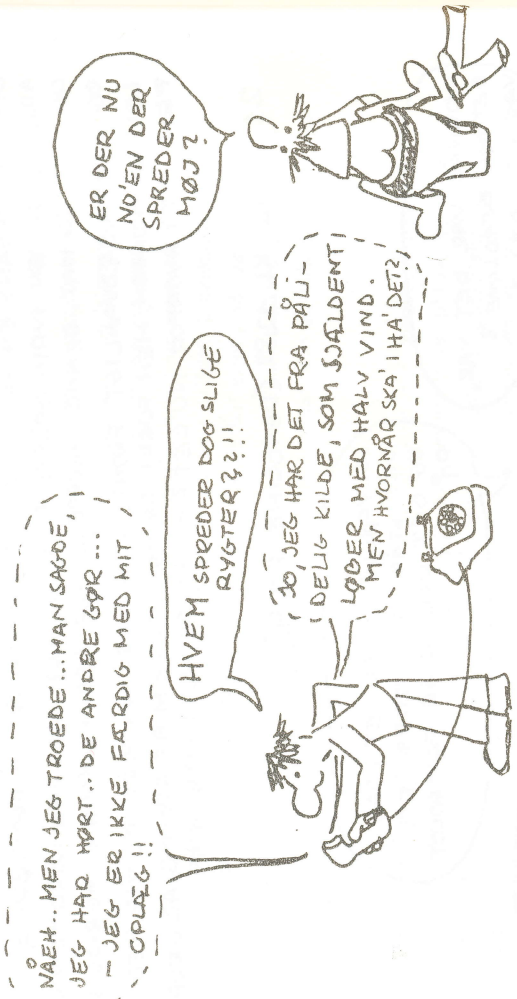 NÅEH.. MEN JEG TROEDE... MAN SAGDE,
JEG HAR HØRT.. DE ANDRE GØR...
– JEG ER IKKE FÆRDIG MED MIT
OPLÆG!!
HVEM SPREDER DOG SLIGE
RYGTER??!!
JO, JEG HAR DET FRA PÅLI-
DELIG KILDE, SOM SJÆLDENT
LØBER MED HALV VIND.
MEN HVORNÅR SKA' I HA' DET?
ER DER NU
NO'EN DER
SPREDER
MØJ?